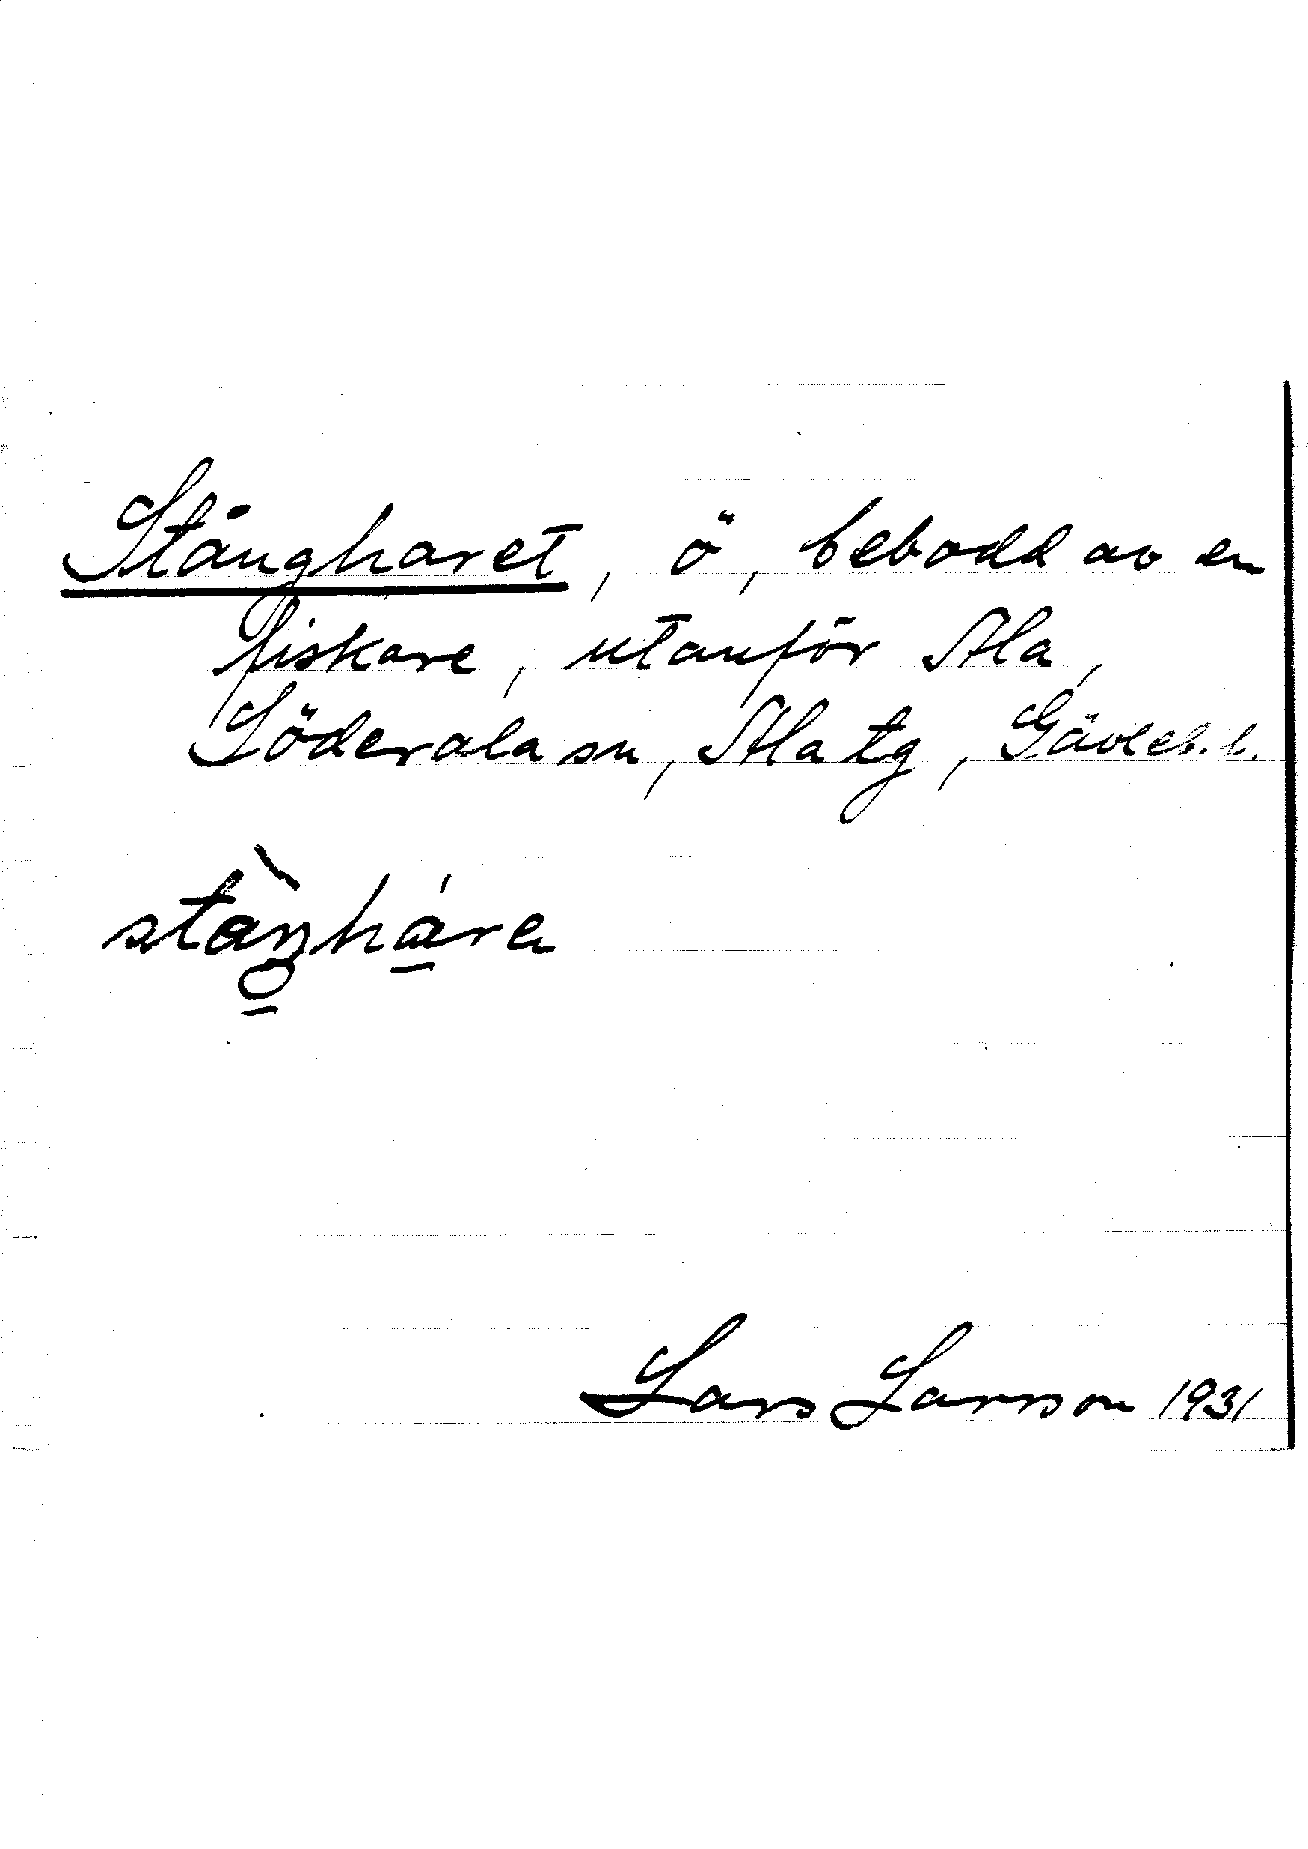 Stångharet, ö, bebodd av en
fiskare, utanför Ala,
Söderala sn, Ala tg, Gävleb. l.
Lars Larsson 1931